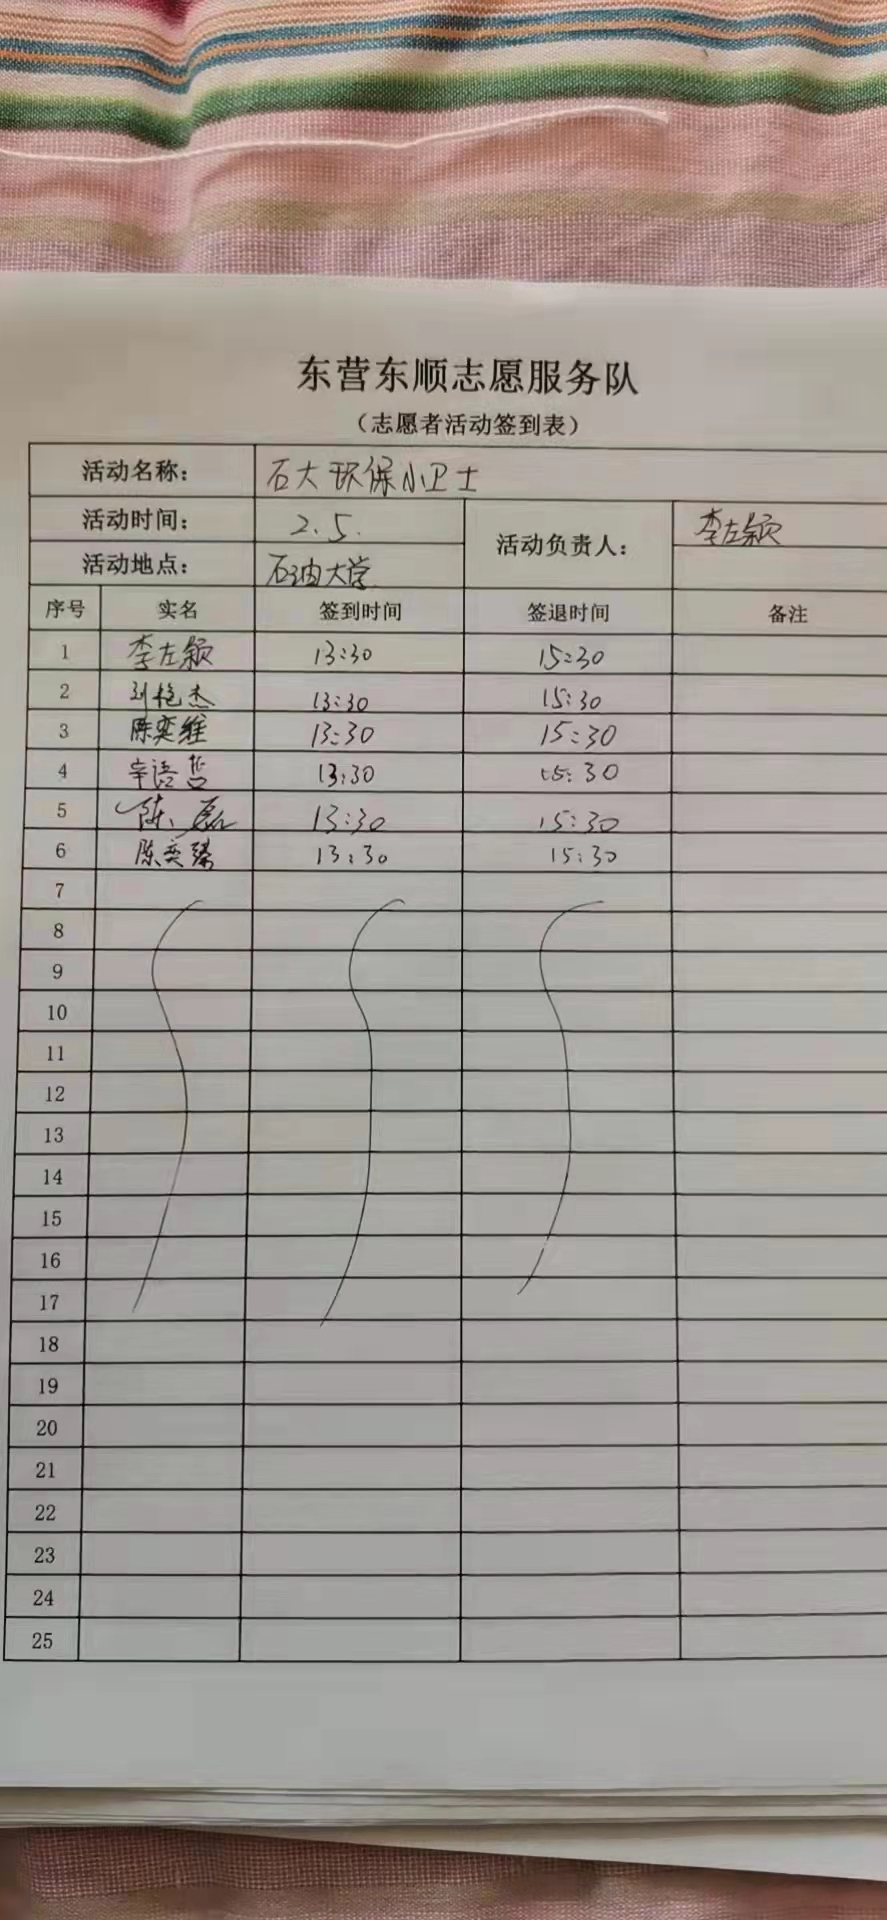 东营东顺志愿服务队
（志愿者活动签到表）
活动名称： 石大环保小卫士
活动时间： 2.5. 活动负责人： 李左颖
活动地点： 石油大学
序号 实名 签到时间 签退时间 备注
1 李左颖 13:30 15:30
2 刘艳杰 13:30 15:30
3 陈奕维 13:30 15:30
4 辛语哲 13:30 15:30
5 陈磊 13:30 15:30
6 陈奕臻 13:30 15:30
7
8
9
10
11
12
13
14
15
16
17
18
19
20
21
22
23
24
25